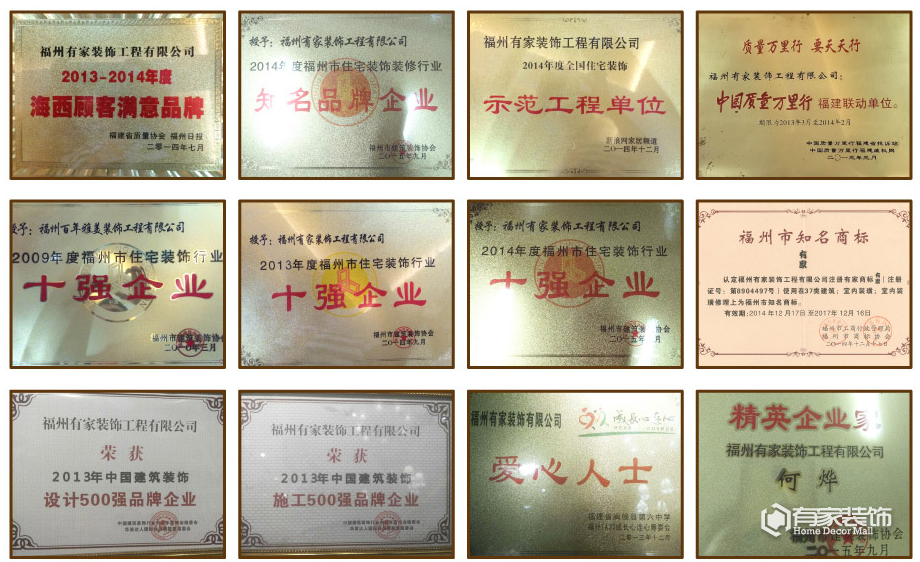 福州有家装饰工程有限公司
2013-2014年度
海西顾客满意品牌
福建省质量协会 福州日报
二〇一四年七月
授予：福州有家装饰工程有限公司
2014年度福州市住宅装饰装修行业
知名品牌企业
福州市建筑装饰协会
二〇一五年九月
福州有家装饰工程有限公司
2014年度全国住宅装饰
示范工程单位
新浪网家居频道
二〇一四年十二月
质量万里行 要天天行
福州有家装饰工程有限公司：
中国质量万里行 福建联动单位。
期限为2013年3月至2014年2月
中国质量万里行福建省投诉站
中国质量万里行福建维权网
二〇一三年三月
授予：福州百年雅美装饰工程有限公司
2009年度福州市住宅装饰行业
十强企业
福州市建筑装饰协会
二〇一〇年三月
授予：福州有家装饰工程有限公司
2013年度福州市住宅装饰行业
十强企业
福州市建筑装饰协会
二〇一四年九月
授予：福州有家装饰工程有限公司
2014年度福州市住宅装饰行业
十强企业
福州市建筑装饰协会
二〇一五年九月
福州市知名商标
有家
认定福州有家装饰工程有限公司注册有家商标（注册
证号：第8904497号）使用在37类建筑；室内装璜；室内装
璜修理上为福州市知名商标。
有效期：2014年12月17日至2017年12月16日
福州市工商行政管理局
福州市商标协会
二〇一四年十二月十七日
福州有家装饰工程有限公司
荣获
2013年中国建筑装饰
设计500强品牌企业
福州有家装饰工程有限公司
荣获
2013年中国建筑装饰
施工500强品牌企业
福州有家装饰有限公司
爱心人士
二〇一三年十二月
精英企业家
福州有家装饰工程有限公司
何烨
有家装饰
Home Decor Mall
福州市建筑装饰协会
二〇一五年九月